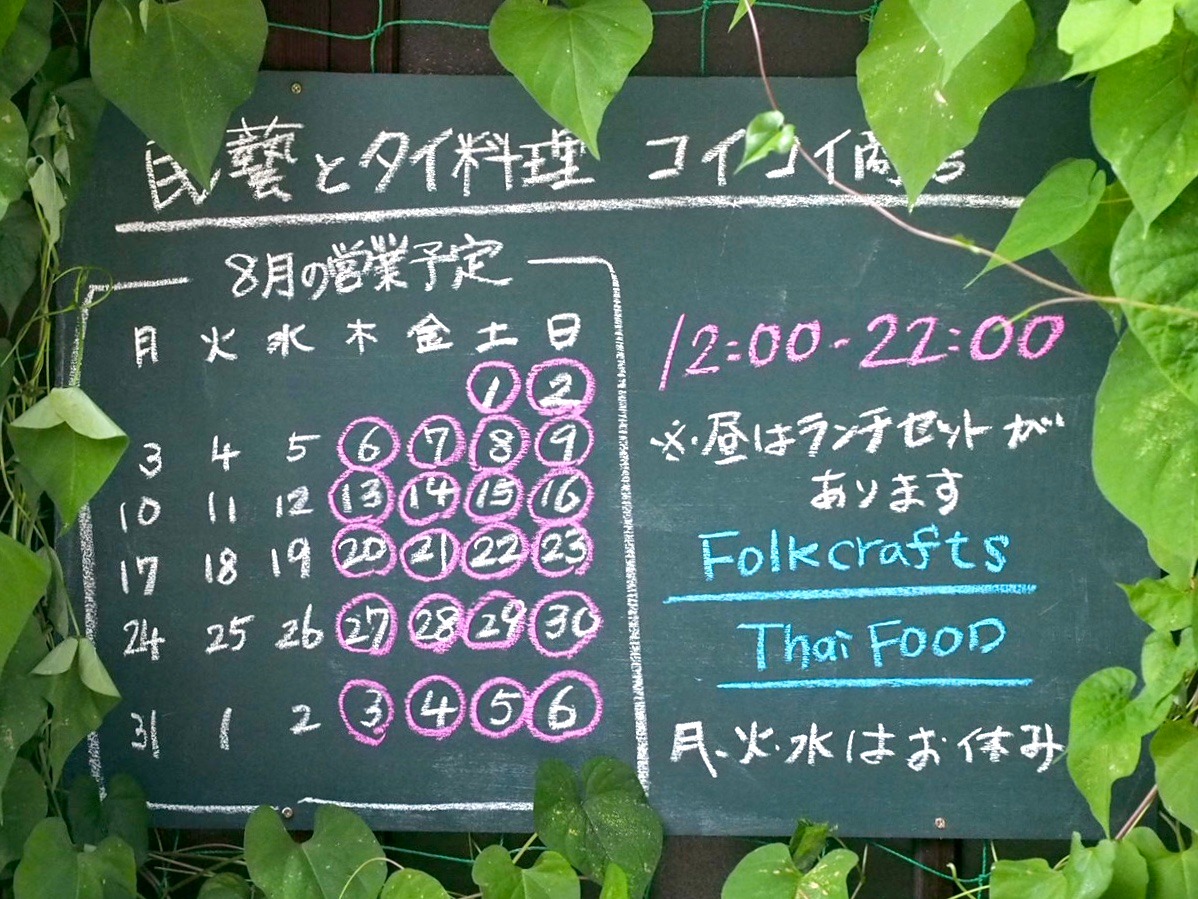 民藝とタイ料理 コイコイ商
8月の営業予定
月 火 水 木 金 土 日
1 2
3 4 5 6 7 8 9
10 11 12 13 14 15 16
17 18 19 20 21 22 23
24 25 26 27 28 29 30
31 1 2 3 4 5 6
12:00-22:00
※・昼はランチセットが
あります
Folkcrafts
Thai FOOD
月、火・水はお休み